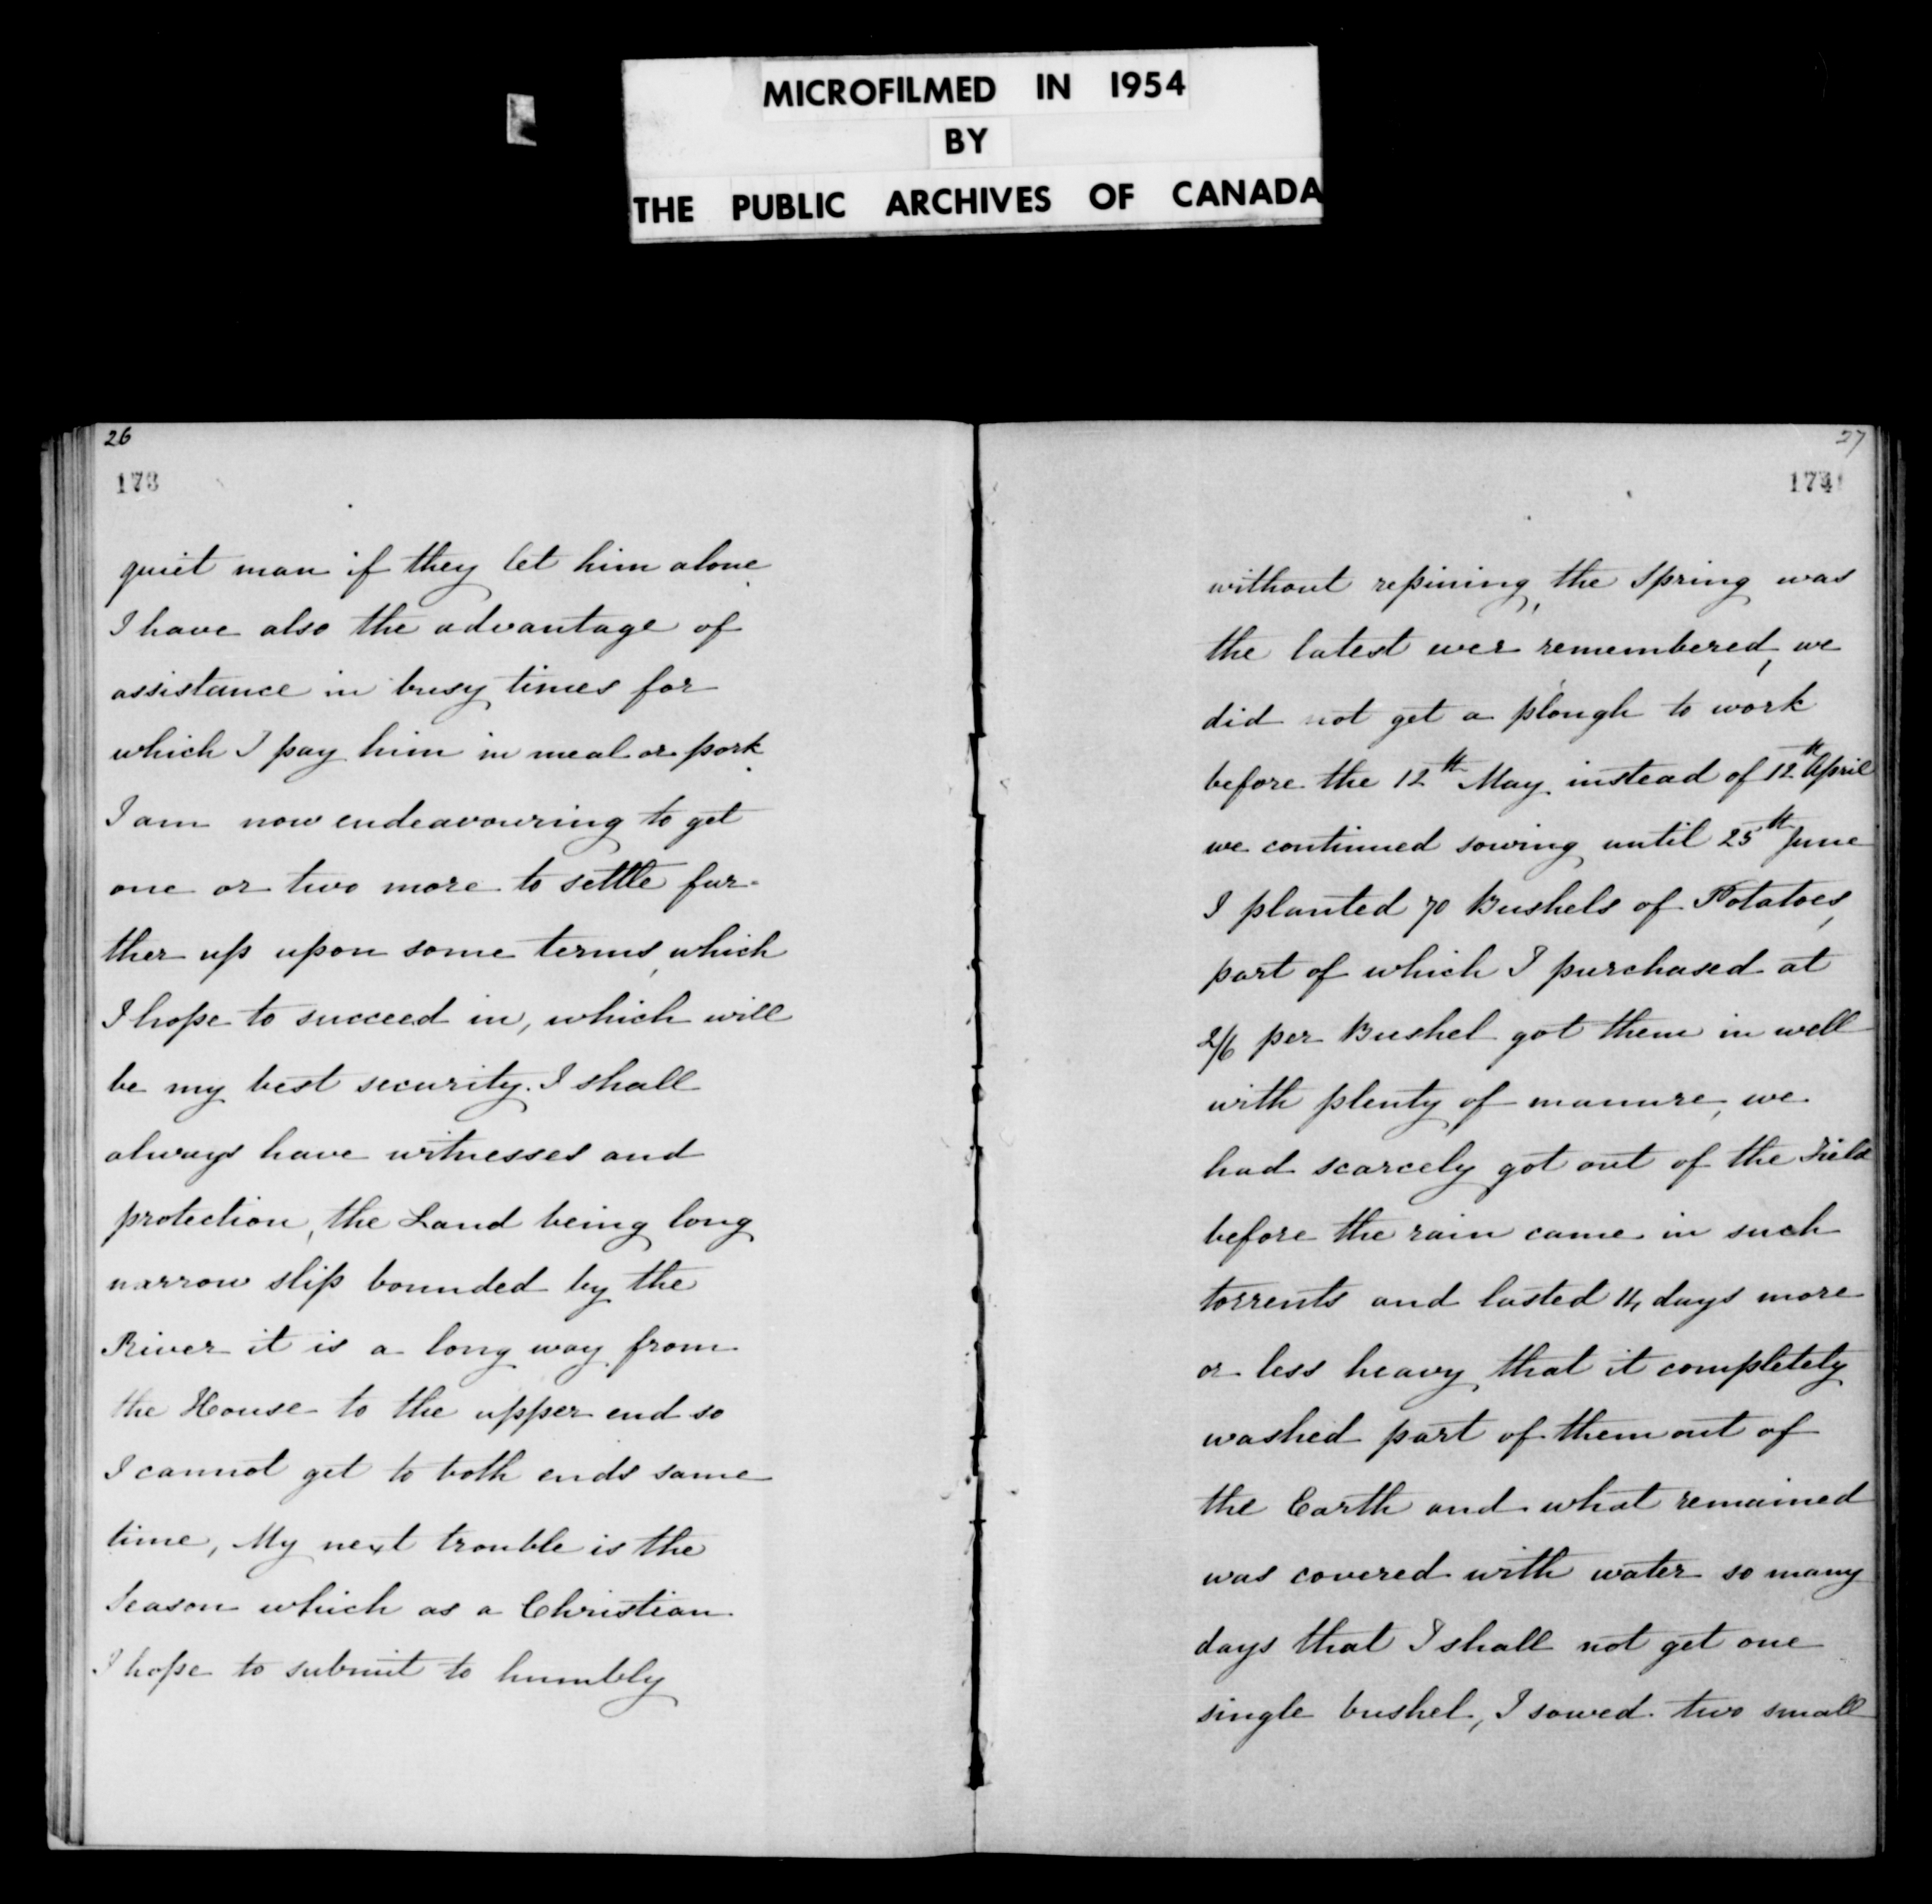 MICROFILMED IN 1954
BY
THE PUBLIC ARCHIVES OF CANADA
26
173
quiet man if they let him alone.
I have also the advantage of
assistance in busy times for
which I pay him in meal or pork.
I am now endeavouring to get
one or two more to settle fur-
ther up upon some terms, which
I hope to succeed in, which will
be my best security. I shall
always have witnesses and
protection, the Land being long
narrow slip bounded by the
River it is a long way from
the House to the upper end so
I cannot get to both ends same
time, My next trouble is the
Season which as a Christian
I hope to submit to humbly
27
174
without repining, the Spring was
the latest ever remembered, we
did not get a plough to work
before the 12th May instead of 12th April
we continued sowing until 25th June
I planted 70 Bushels of Potatoes,
part of which I purchased at
2/6 per Bushel got them in well
with plenty of manure, we
had scarcely got out of the Field
before the rain came in such
torrents and lasted 14 days more
or less heavy that it completely
washed part of them out of
the Earth and what remained
was covered with water so many
days that I shall not get one
single bushel, I sowed two small